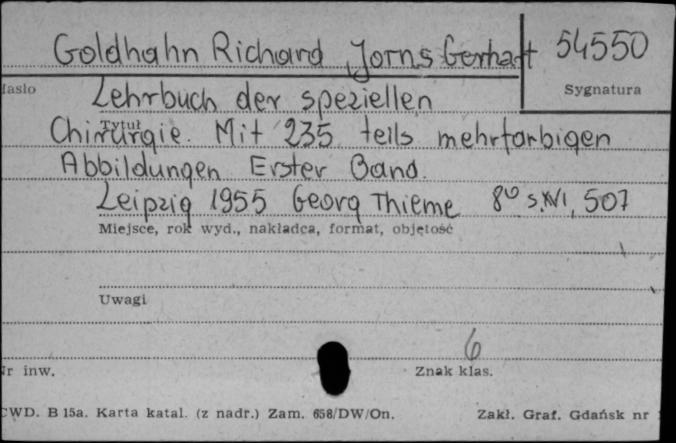 Goldhahn Richard Jorns Gerhart 54550
Sygnatura
Hasło
Lehrbuch der speziellen
Tytuł
Chirurgie. Mit 235 teils mehrfarbigen
Abbildungen Erster Band.
Leipzig 1955 Georg Thieme 8⁰ s. XVI, 507
Miejsce, rok wyd., nakładca, format, objętość
Uwagi
6
Nr inw. Znak klas.
CWD. B 15a. Karta katal. (z nadr.) Zam. 658/DW/On. Zakł. Graf. Gdańsk nr